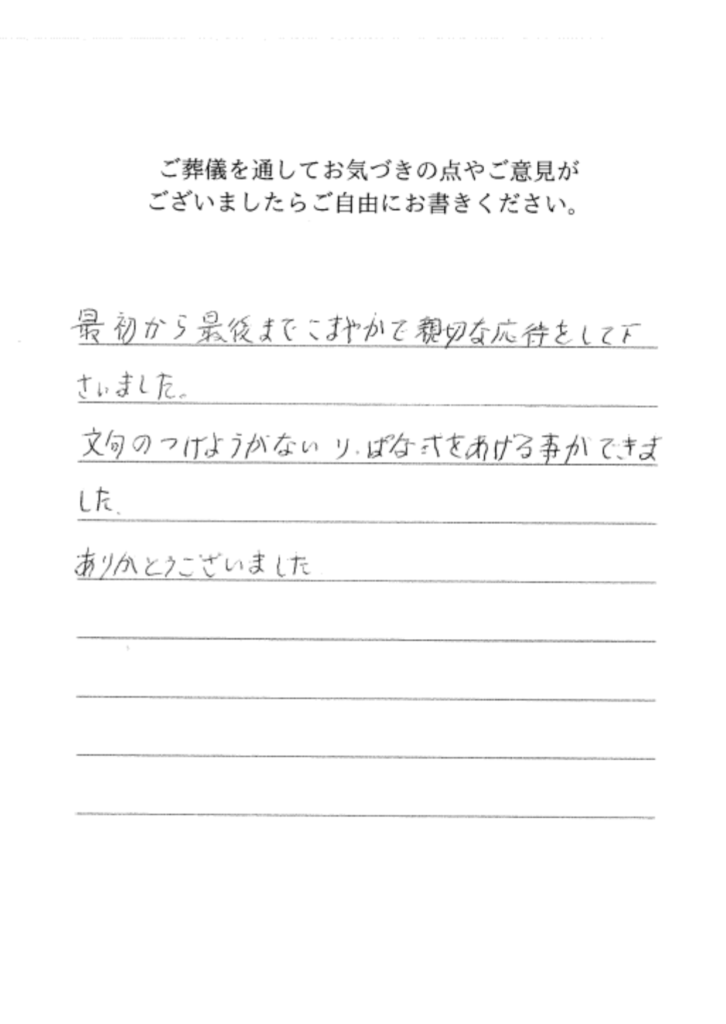 ご葬儀を通してお気づきの点やご意見が
ございましたらご自由にお書きください。
最初から最後までこまやかで親切な応待をして下
さいました。
文句のつけようがないりっぱな式をあげる事ができま
した.
ありがとうございました